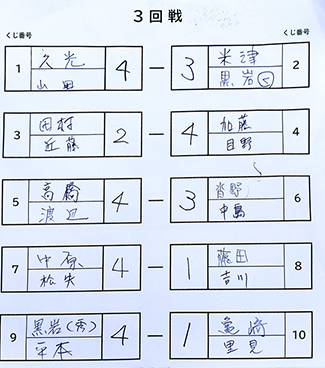 3回戦
くじ番号 くじ番号
1 久光 4 — 3 米津 2
山田 黒岩
3 田村 2 — 4 加藤 4
近藤 目野
5 高橋 4 — 3 菅野 6
渡辺 中島
7 中原 4 — 1 藤田 8
松矢 吉川
9 黒岩(秀) 4 — 1 亀崎 10
平本 里見